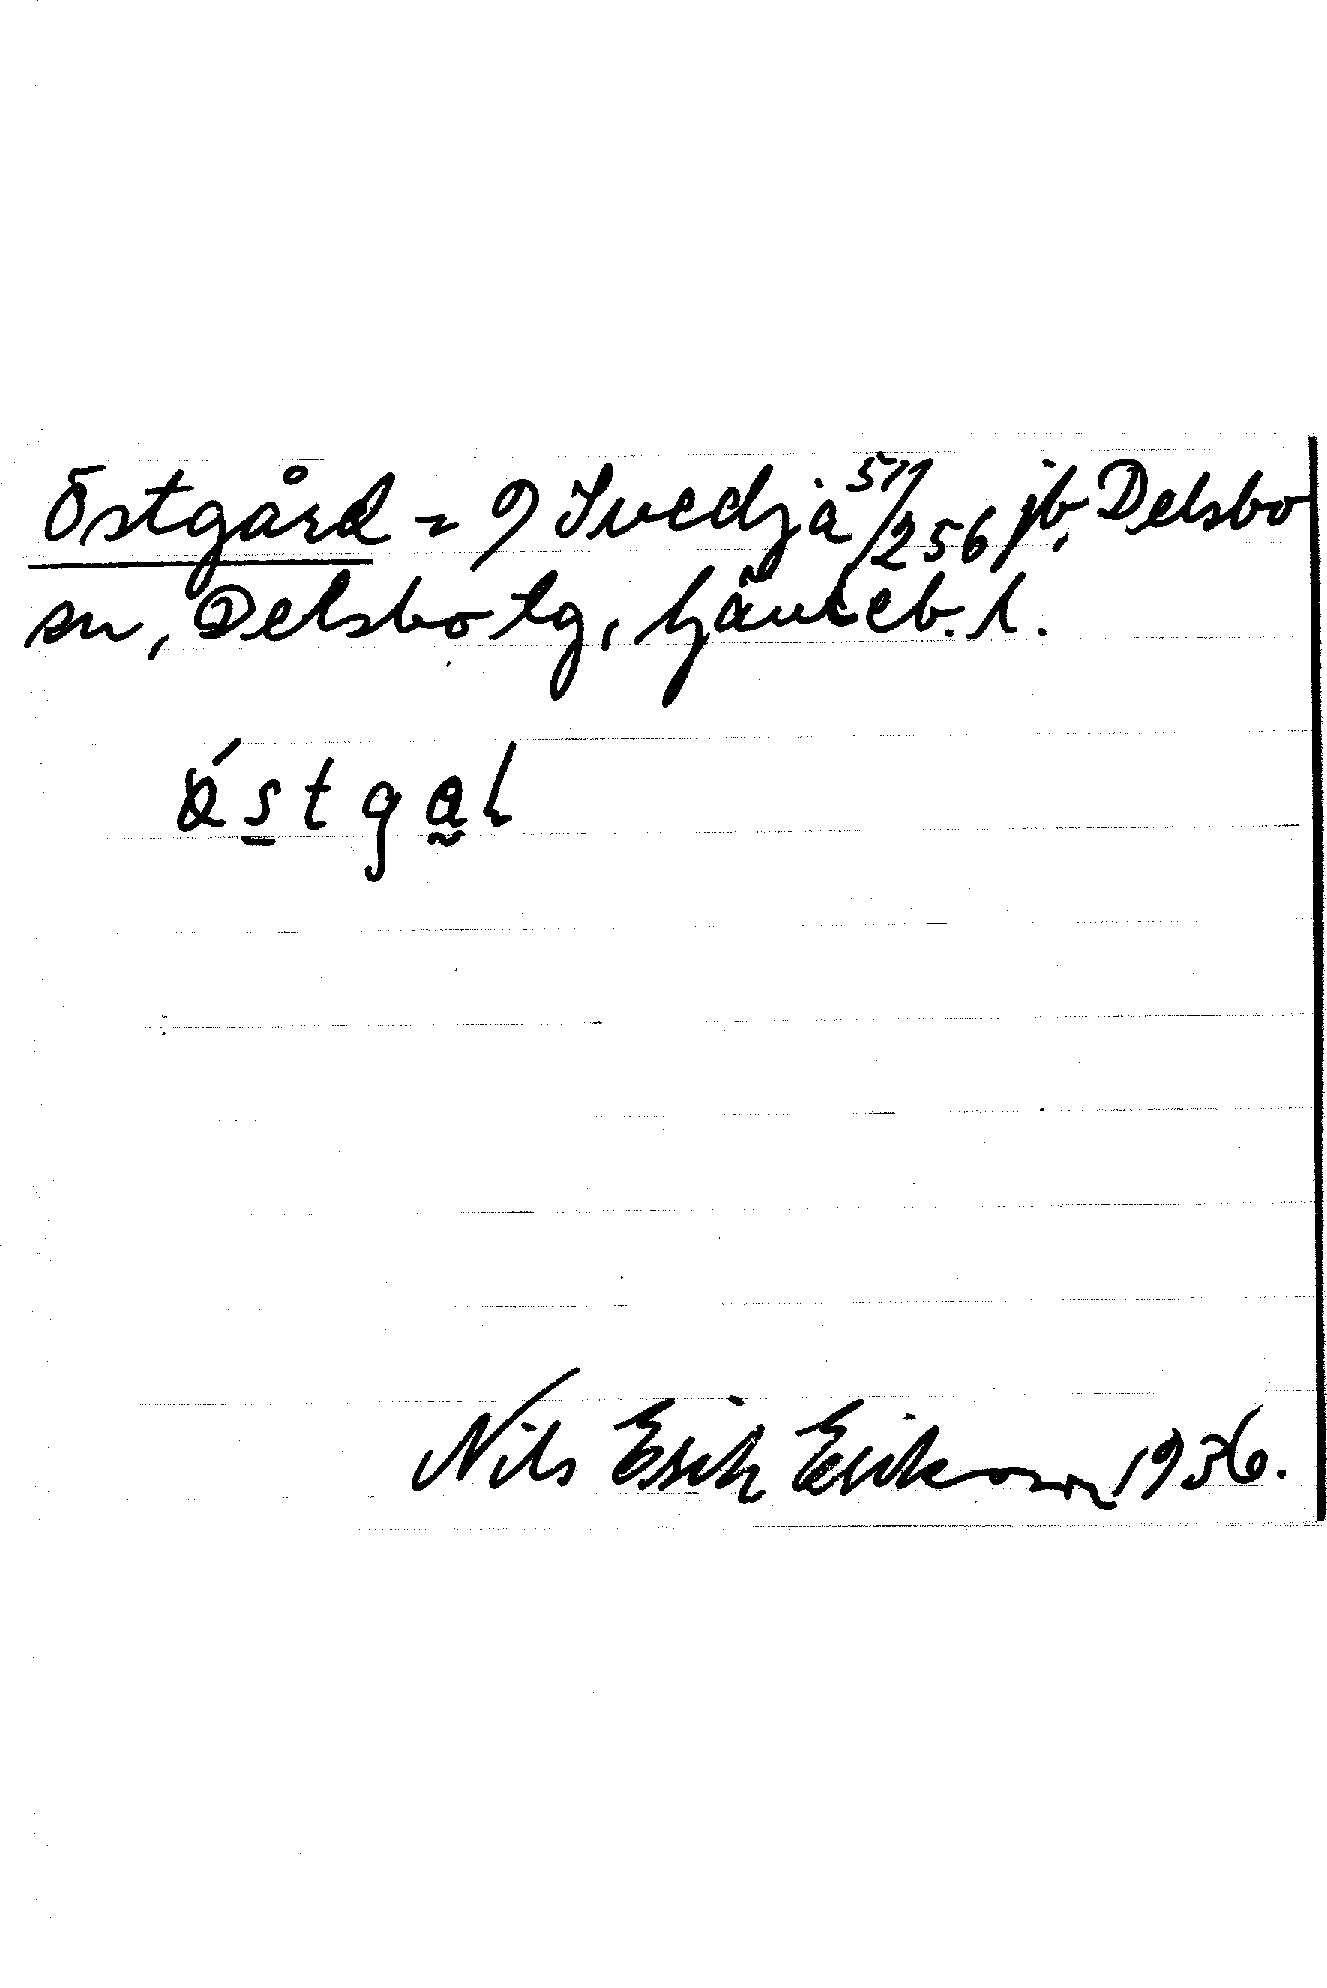 Östgård = 9 Svedja 511/256 jb, Delsbo
sn, Delsbo tg, Gävleb. l.
Nils Erik Erikson 1936.